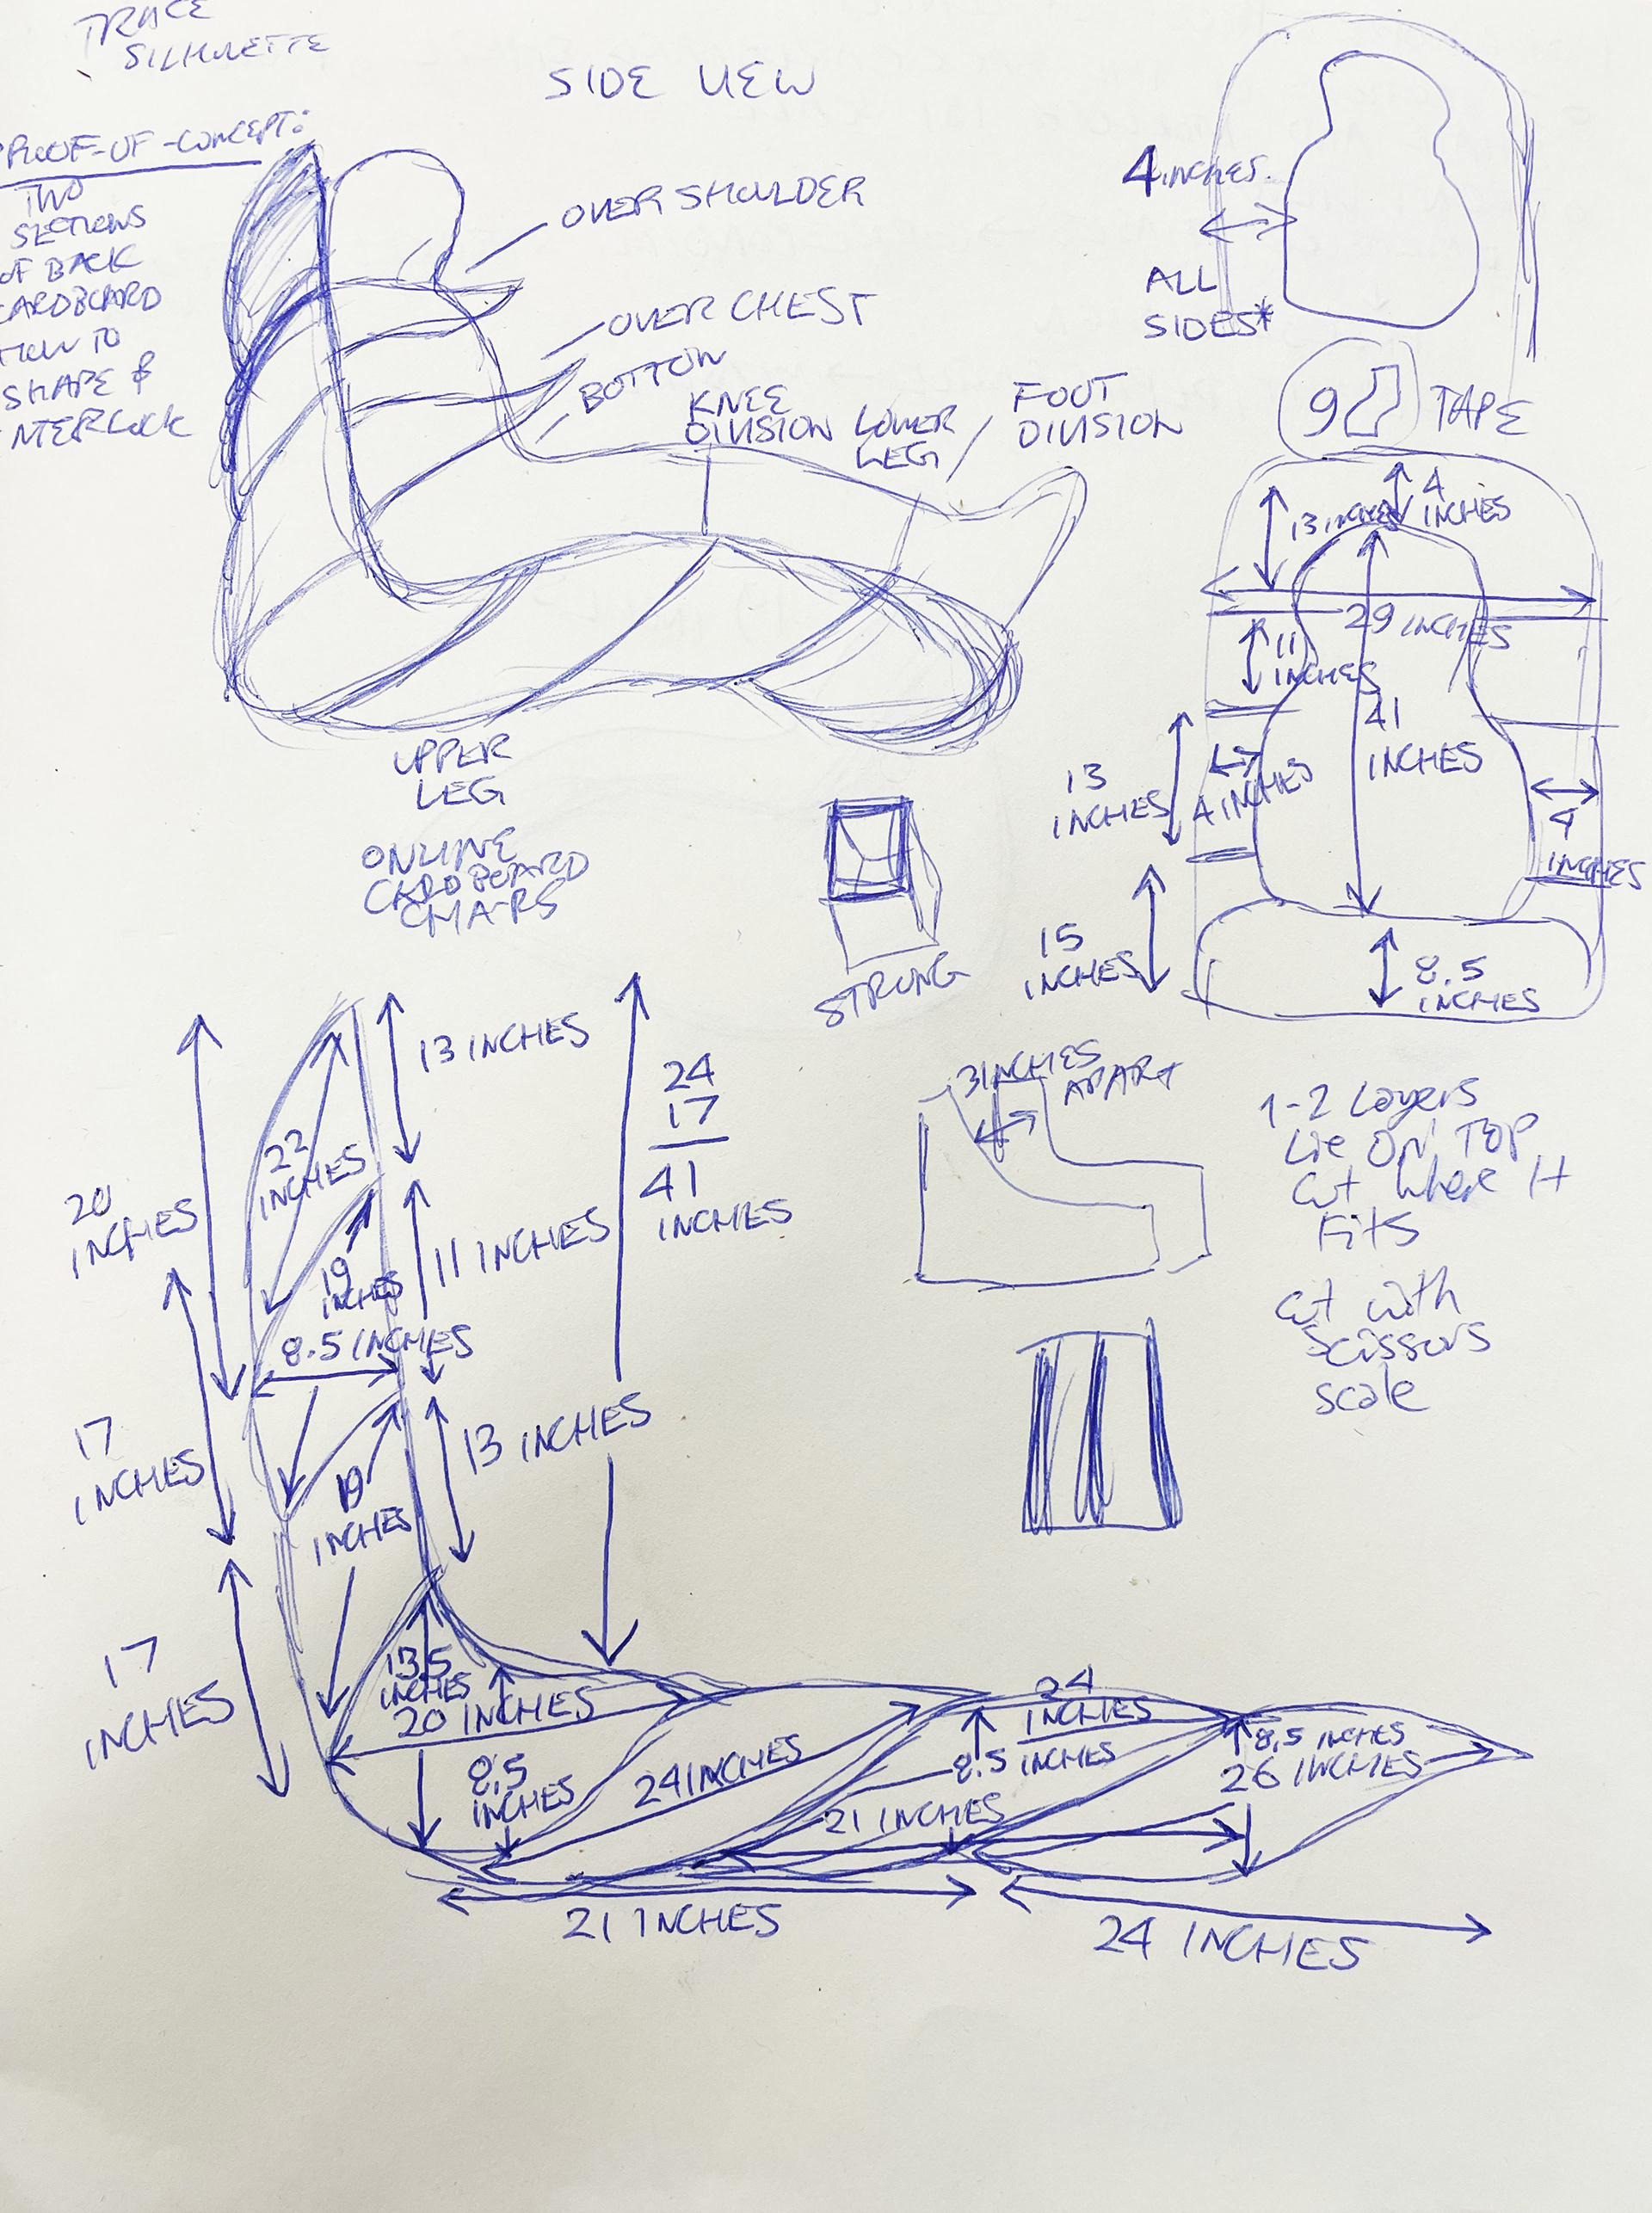 TRACE
SILHOUETTE
SIDE VIEW
PROOF-OF-CONCEPT:
TWO
SECTIONS
OF BACK
CARDBOARD
TO
SHAPE &
INTERLOCK
OVER SHOULDER
OVER CHEST
BOTTOM
KNEE
DIVISION
LOWER
LEG
FOOT
DIVISION
UPPER
LEG
ONLINE
CARDBOARD
CHAIRS
STRONG
4 INCHES.
ALL
SIDES*
9
TAPE
4
INCHES
13 INCHES
29 INCHES
11
INCHES
41
INCHES
13
INCHES
4 INCHES
4
INCHES
15
INCHES
8.5
INCHES
3 INCHES
APART
1-2 Layers
Lie ON TOP
Cut Where It
Fits
Cut with
Scissors
scale
13 INCHES
24
17
41
INCHES
22
INCHES
20
INCHES
11 INCHES
19
INCHES
8.5 INCHES
17
INCHES
13 INCHES
19
INCHES
17
INCHES
13.5
INCHES
20 INCHES
8.5
INCHES
24 INCHES
24
INCHES
8.5 INCHES
8.5 INCHES
26 INCHES
21 INCHES
21 INCHES
24 INCHES